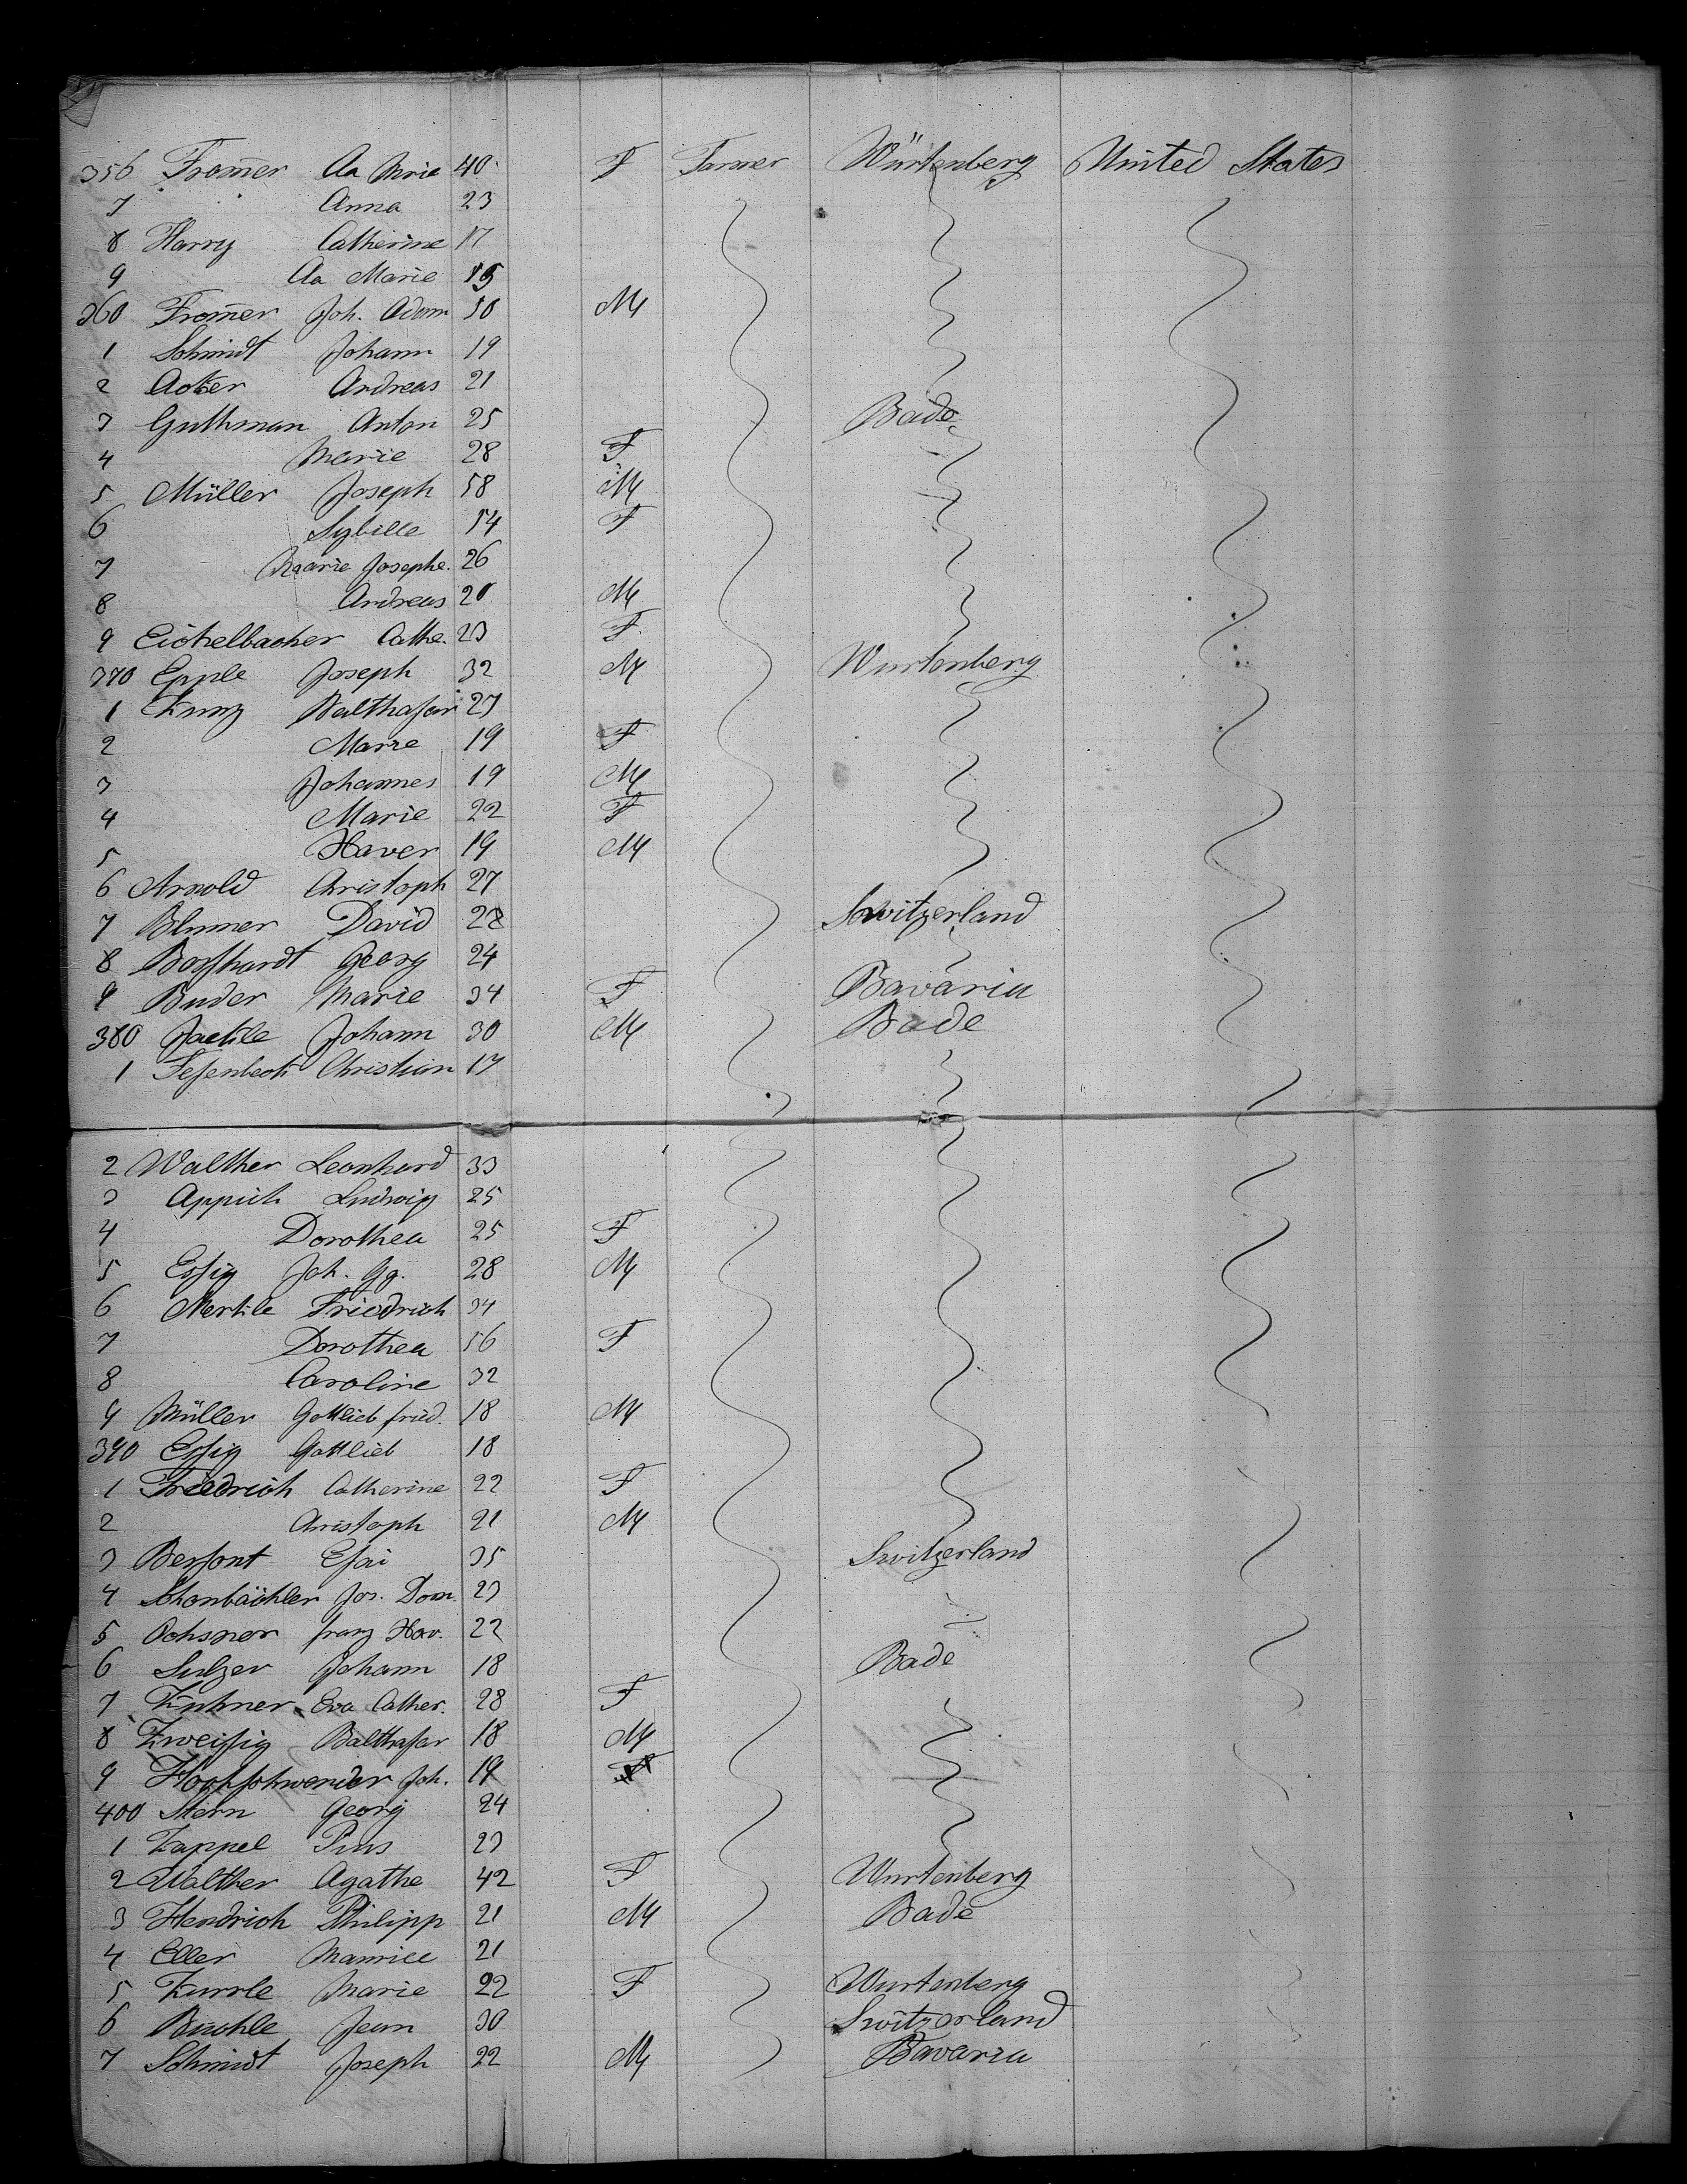 356 Fromer Aa Mrie 40 F Farmer Würtenberg United States
7 Anna 23
8 Harry Catherine 17
9 Aa Marie 15
360 Fromer Joh. Adam 50 M
1 Schmidt Johann 19
2 Acker Andreas 21
3 Guthman Anton 25 Bade
4 Marie 28 F
5 Müller Joseph 58 M
6 Sybille 54 F
7 Marie Josephe. 26
8 Andreas 20 M
9 Eichelbacher Cathe. 23 F
370 Epple Joseph 32 M Wurtenberg
1 Kunz Balthasar 27
2 Marie 19 F
3 Johannes 19 M
4 Marie 22 F
5 Xaver 19 M
6 Arnold Christoph 27
7 Blumer David 22 Switzerland
8 Bosshardt Georg 24
9 Buder Marie 34 F Bavaria
380 Jackle Johann 30 M Bade
1 Fesenbeck Christian 17
2 Walther Leonhard 33
3 Appich Ludwig 25
4 Dorothea 25 F
5 Essig Joh. Gg. 28 M
6 Merkle Friedrich 34
7 Dorothea 56 F
8 Caroline 32
9 Müller Gottlieb fried. 18 M
390 Essig Gottlieb 18
1 Friedrich Catherine 22 F
2 Christoph 21 M
3 Bersont Esai 35 Switzerland
4 Schonbächler Jos. Dom. 23
5 Ochsner franz Xav. 22
6 Sulzer Johann 18 Bade
7 Kuhner Eva Cather. 28 F
8 Zweisig Balthasar 18 M
9 Hochschwender Joh. 19
400 Stern Georg 24
1 Kappel Pius 23
2 Walther Agathe 42 F Wurtenberg
3 Hendrich Philipp 21 M Bade
4 Eller Maurice 21
5 Kurrle Marie 22 F Wurtenberg
6 Buchle Jean 30 Switzerland
7 Schmidt Joseph 22 M Bavaria